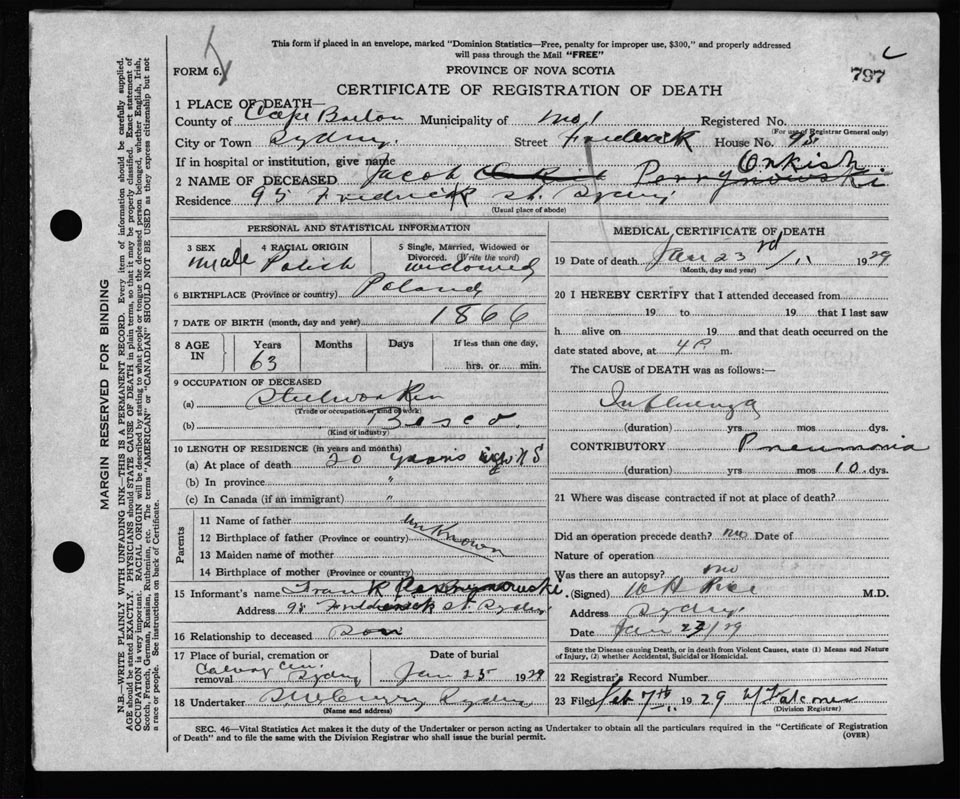 This form if placed in an envelope, marked "Dominion Statistics—Free, penalty for improper use, $300," and properly addressed
will pass through the Mail "FREE"
FORM 6.
PROVINCE OF NOVA SCOTIA
797
CERTIFICATE OF REGISTRATION OF DEATH
1 PLACE OF DEATH—
County of Cape Breton Municipality of No 1 Registered No.
(For use of Registrar General only)
City or Town Sydney Street Frederick House No. 95
If in hospital or institution, give name
Onkish
2 NAME OF DECEASED Jacob Perrynowski
Residence 95 Fredrick St. Sydney
(Usual place of abode)
PERSONAL AND STATISTICAL INFORMATION
3 SEX 4 RACIAL ORIGIN 5 Single, Married, Widowed or Divorced. (Write the word)
Male Polish widowed
6 BIRTHPLACE (Province or country) Poland
7 DATE OF BIRTH (month, day and year) 1866
8 AGE IN Years Months Days If less than one day,
63 hrs. or min.
9 OCCUPATION OF DECEASED
(a) Steelworker
(Trade or occupation or kind of work)
(b) Besco.
(Kind of industry)
10 LENGTH OF RESIDENCE (in years and months)
(a) At place of death 20 years NS
(b) In province "
(c) In Canada (if an immigrant) "
Parents
11 Name of father
12 Birthplace of father (Province or country) unknown
13 Maiden name of mother
14 Birthplace of mother (Province or country)
15 Informant's name Frank Perrynowski
Address 95 Frederick St. Sydney
16 Relationship to deceased Son
17 Place of burial, cremation or removal Date of burial
Calvary Cem. Sydney Jan 25 1929
18 Undertaker Sydney
(Name and address)
MEDICAL CERTIFICATE OF DEATH
19 Date of death Jan 23rd / 1929
(Month, day and year)
20 I HEREBY CERTIFY that I attended deceased from
19 to 19 that I last saw
h alive on 19 and that death occurred on the
date stated above, at 4 P m.
The CAUSE of DEATH was as follows:—
Influenza
(duration) yrs mos dys.
CONTRIBUTORY Pneumonia
(duration) yrs mos 10 dys.
21 Where was disease contracted if not at place of death?
Did an operation precede death? no Date of
Nature of operation
Was there an autopsy? no
(Signed) W H Rice M.D.
Address Sydney
Date Jan 23/29
State the Disease causing Death, or in death from Violent Causes, state (1) Means and Nature
of Injury, (2) whether Accidental, Suicidal or Homicidal.
22 Registrar's Record Number
23 Filed Feb 7th 1929 Falconer
(Division Registrar)
SEC. 46—Vital Statistics Act makes it the duty of the Undertaker or person acting as Undertaker to obtain all the particulars required in the "Certificate of Registration
of Death" and to file the same with the Division Registrar who shall issue the burial permit.
(OVER)
MARGIN RESERVED FOR BINDING
N.B.—WRITE PLAINLY WITH UNFADING INK—THIS IS A PERMANENT RECORD. Every item of information should be carefully supplied.
AGE should be stated EXACTLY. PHYSICIANS should STATE CAUSE OF DEATH in plain terms, so that it may be properly classified. Exact statement of
OCCUPATION is very important. RACIAL ORIGIN will be described by stating to what people or tongue the deceased person belonged, whether English, Irish,
Scotch, French, German, Russian, Ruthenian, etc. The terms "AMERICAN" or "CANADIAN" SHOULD NOT BE USED as they express citizenship but not
a race or people. See instructions on back of Certificate.